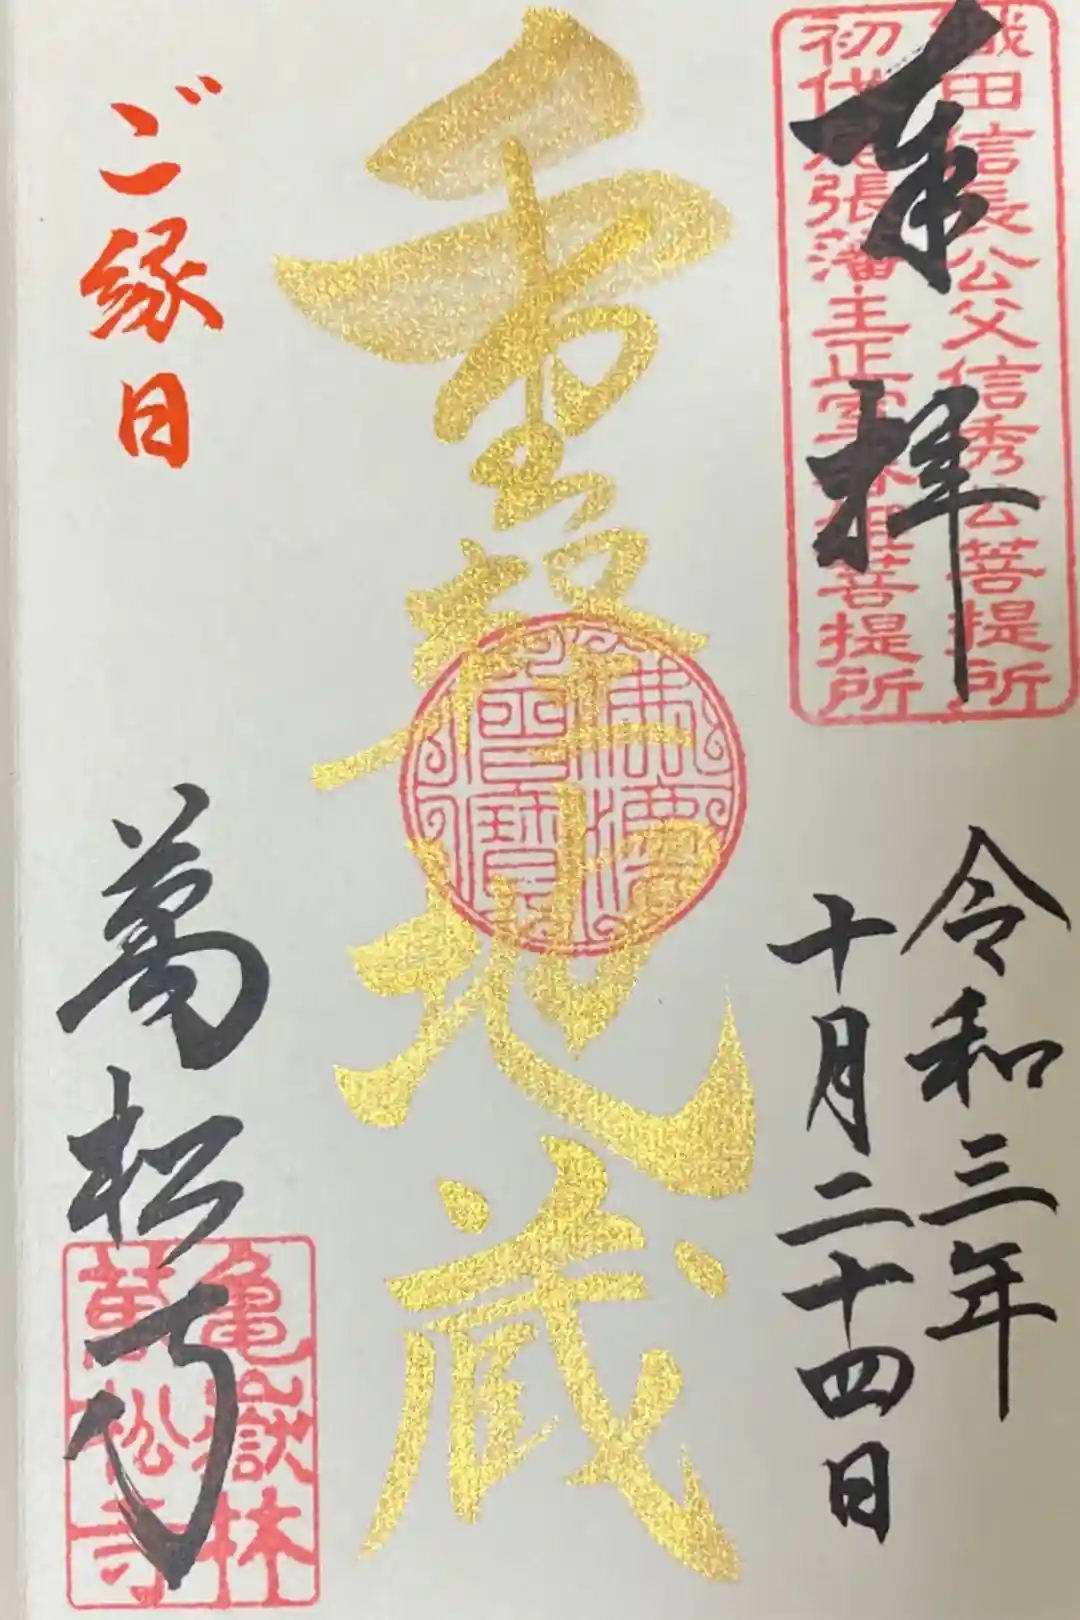 織田信長公父信秀公菩提所
初代尾張藩主正室春姫菩提所
奉拝
令和三年
十月二十四日
重軽地蔵
佛法
僧寶
ご縁日
萬松寺
亀嶽林
萬松寺